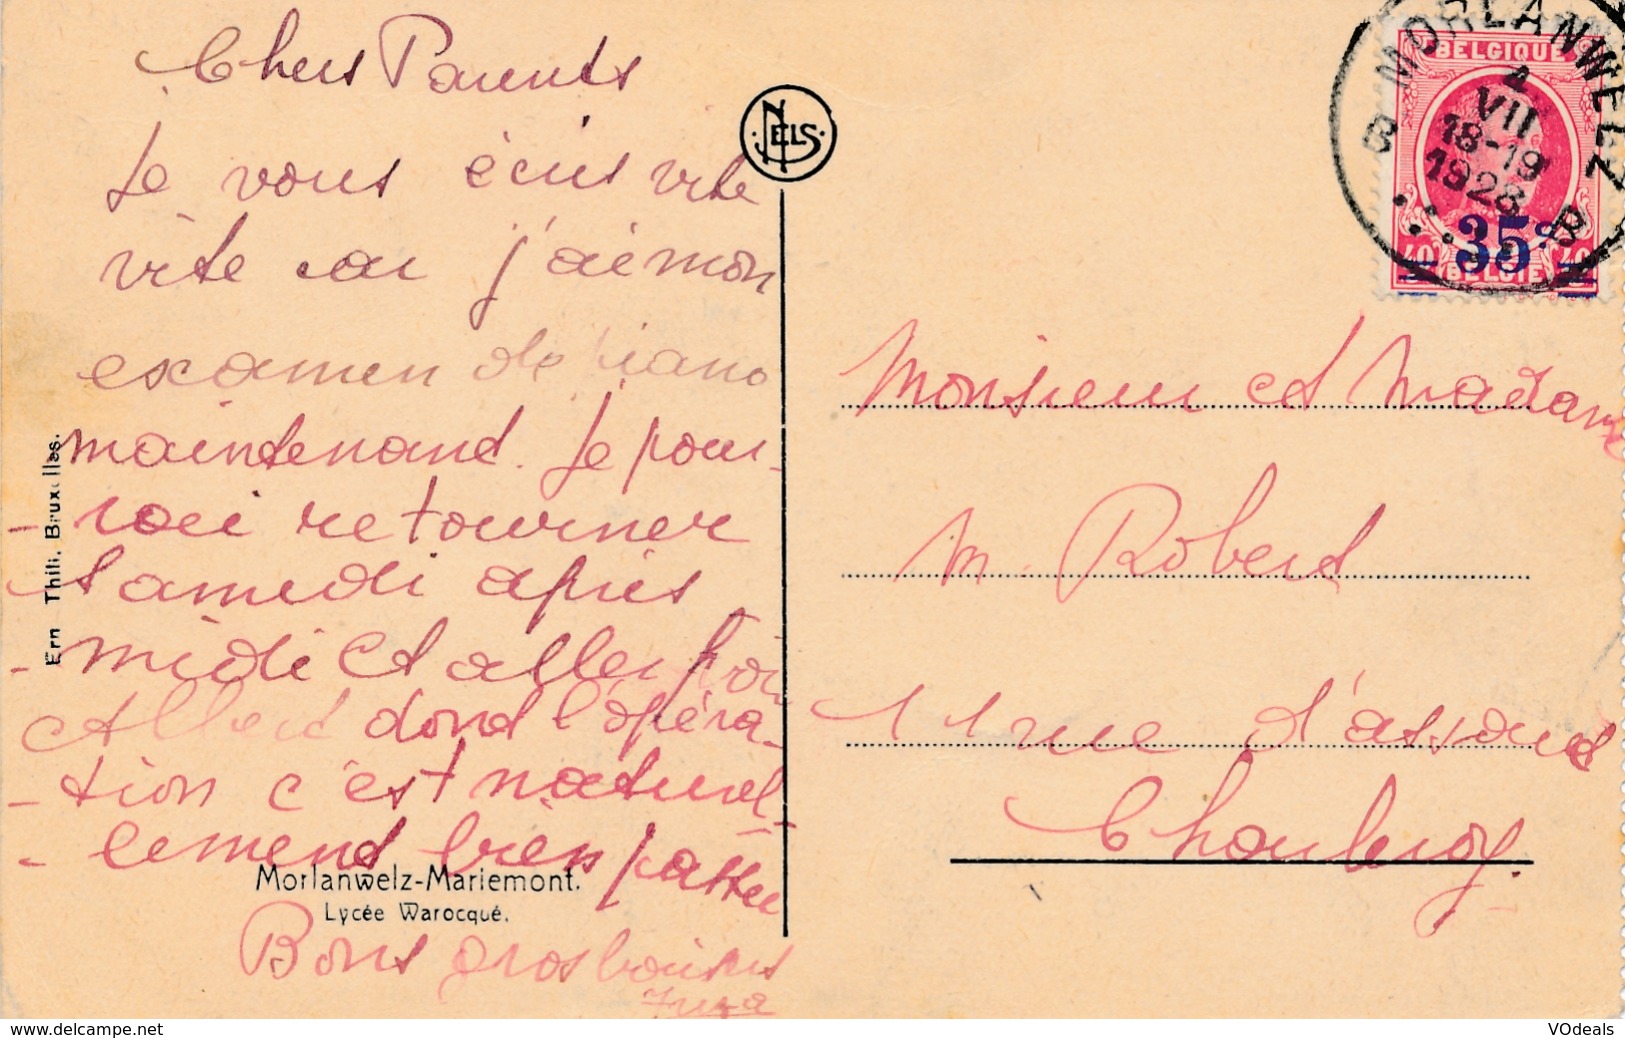 Chers Parents
Je vous écris vite
vite car j'ai mon
examen de piano
maintenant. Je pour-
-rai retourner
samedi après
-midi et aller voir
Albert dont l'opéra-
-tion c'est naturel-
-lement bien passée
Bons gros baisers
NELS
Ern Thill, Bruxelles.
Morlanwelz-Mariemont.
Lycée Warocqué.
MORLANWELZ
4
VII
18-19
1928
B B
BELGIQUE
35c
40 40
BELGIE
Monsieur et Madame
M. Robert
11 rue d'assaut
Charleroy.
www.delcampe.net
VOdeals